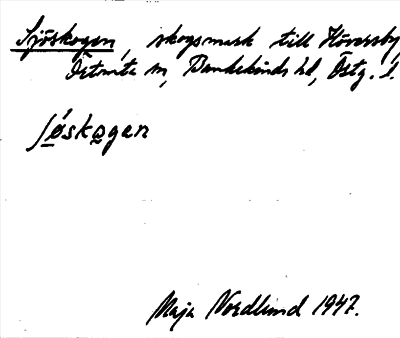 Sjöskogen, skogsmark till Höversby
Östra m, Bankekinds hd, Östg. l.
ʃø̱skǫgen
Maja Nordlund 1947.